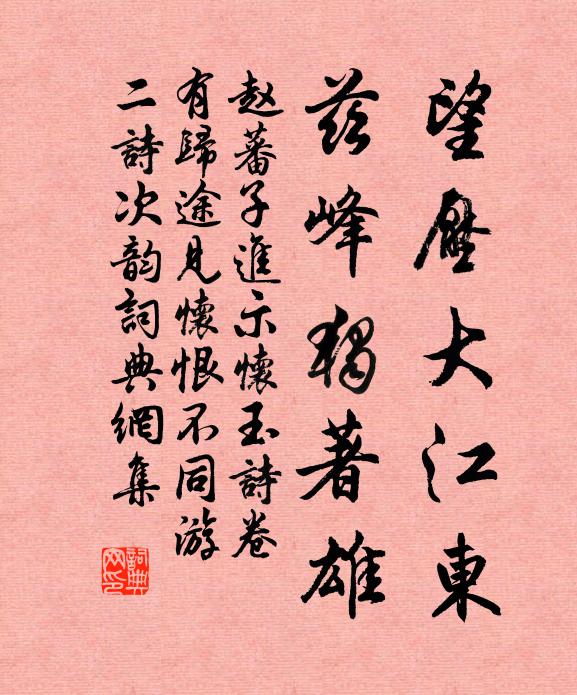 望壓大江東
茲峰獨著雄
赵蕃子進示懷玉詩卷
有歸途見懷恨不同游
二詩次韵詞典網集
詞典
网印